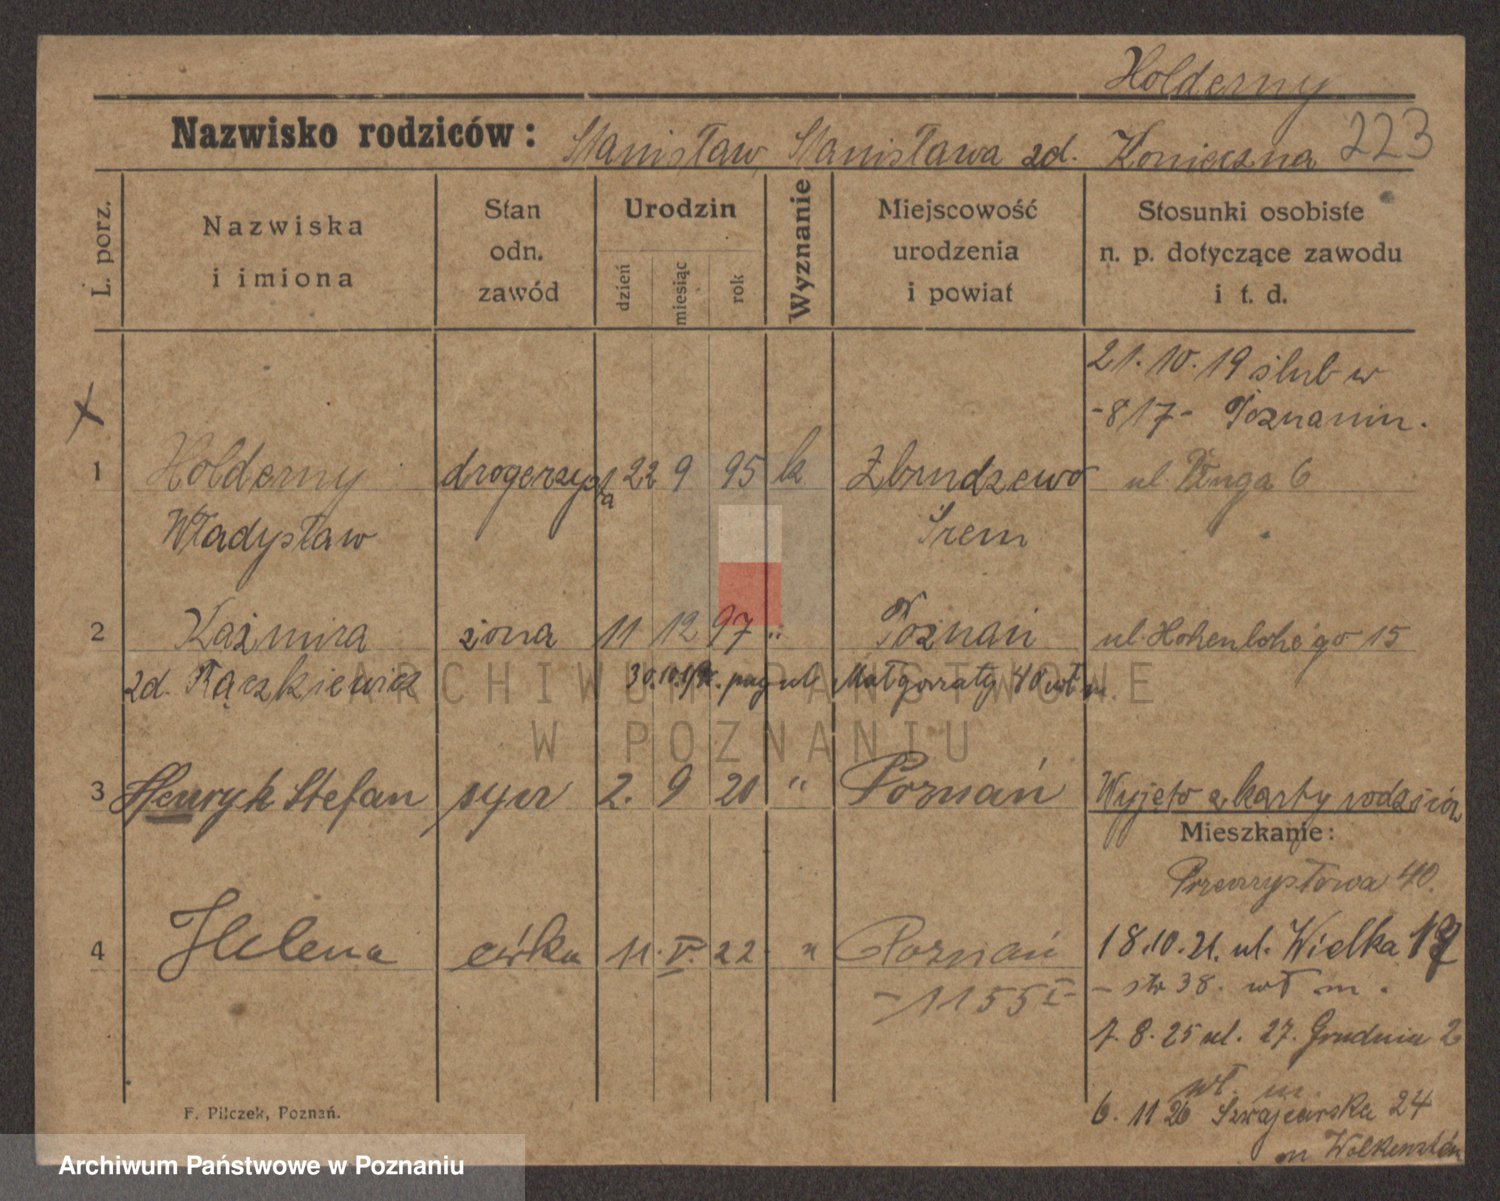 Holderny
Nazwisko rodziców: Stanisław, Stanisława zd. Konieczna 223
L. porz.
Nazwiska i imiona
Stan odn. zawód
Urodzin
dzień
miesiąc
rok
Wyznanie
Miejscowość urodzenia i powiat
Stosunki osobiste n. p. dotyczące zawodu i t. d.
21. 10. 19 ślub w
-817- Poznaniu.
x
1 Holderny drogerzysta 22 9 95 k Zbrudzewo ul. Długa 6
Władysław Śrem
2 Kaźmira żona 11 12 97 " Poznań ul. Hohenlohego 15
zd. Rączkiewicz 30.10. ul Małgorzaty 40
3 Henryk Stefan syn 2. 9 20 " Poznań Wyjęto z karty rodziców
Mieszkanie:
Przemysłowa 40.
4 Helena córka 11. V. 22. " Poznań 18.10.21. ul. Wielka 17
-1155 I- - str 38. wł m.
7. 8. 25 ul. 27. Grudnia 2
wł. m.
6. 11 26 Szwajcarska 24
F. Pilczek, Poznań.
ARCHIWUM PAŃSTWOWE
W POZNANIU
Archiwum Państwowe w Poznaniu